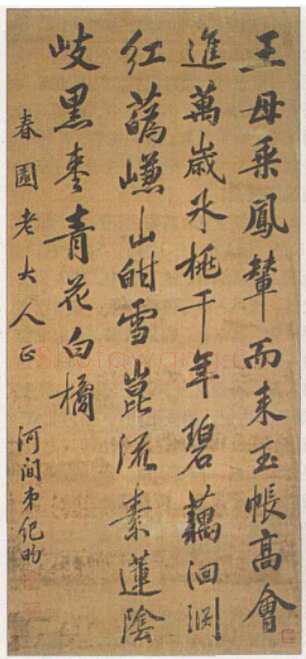 王母乘鳳輦而來玉帳高會
進萬歲冰桃千年碧藕洞淵
紅蘤嵰山甜雪崑流素蓮陰
岐黑棗青花白橘
春圃老大人正 河間弟紀昀